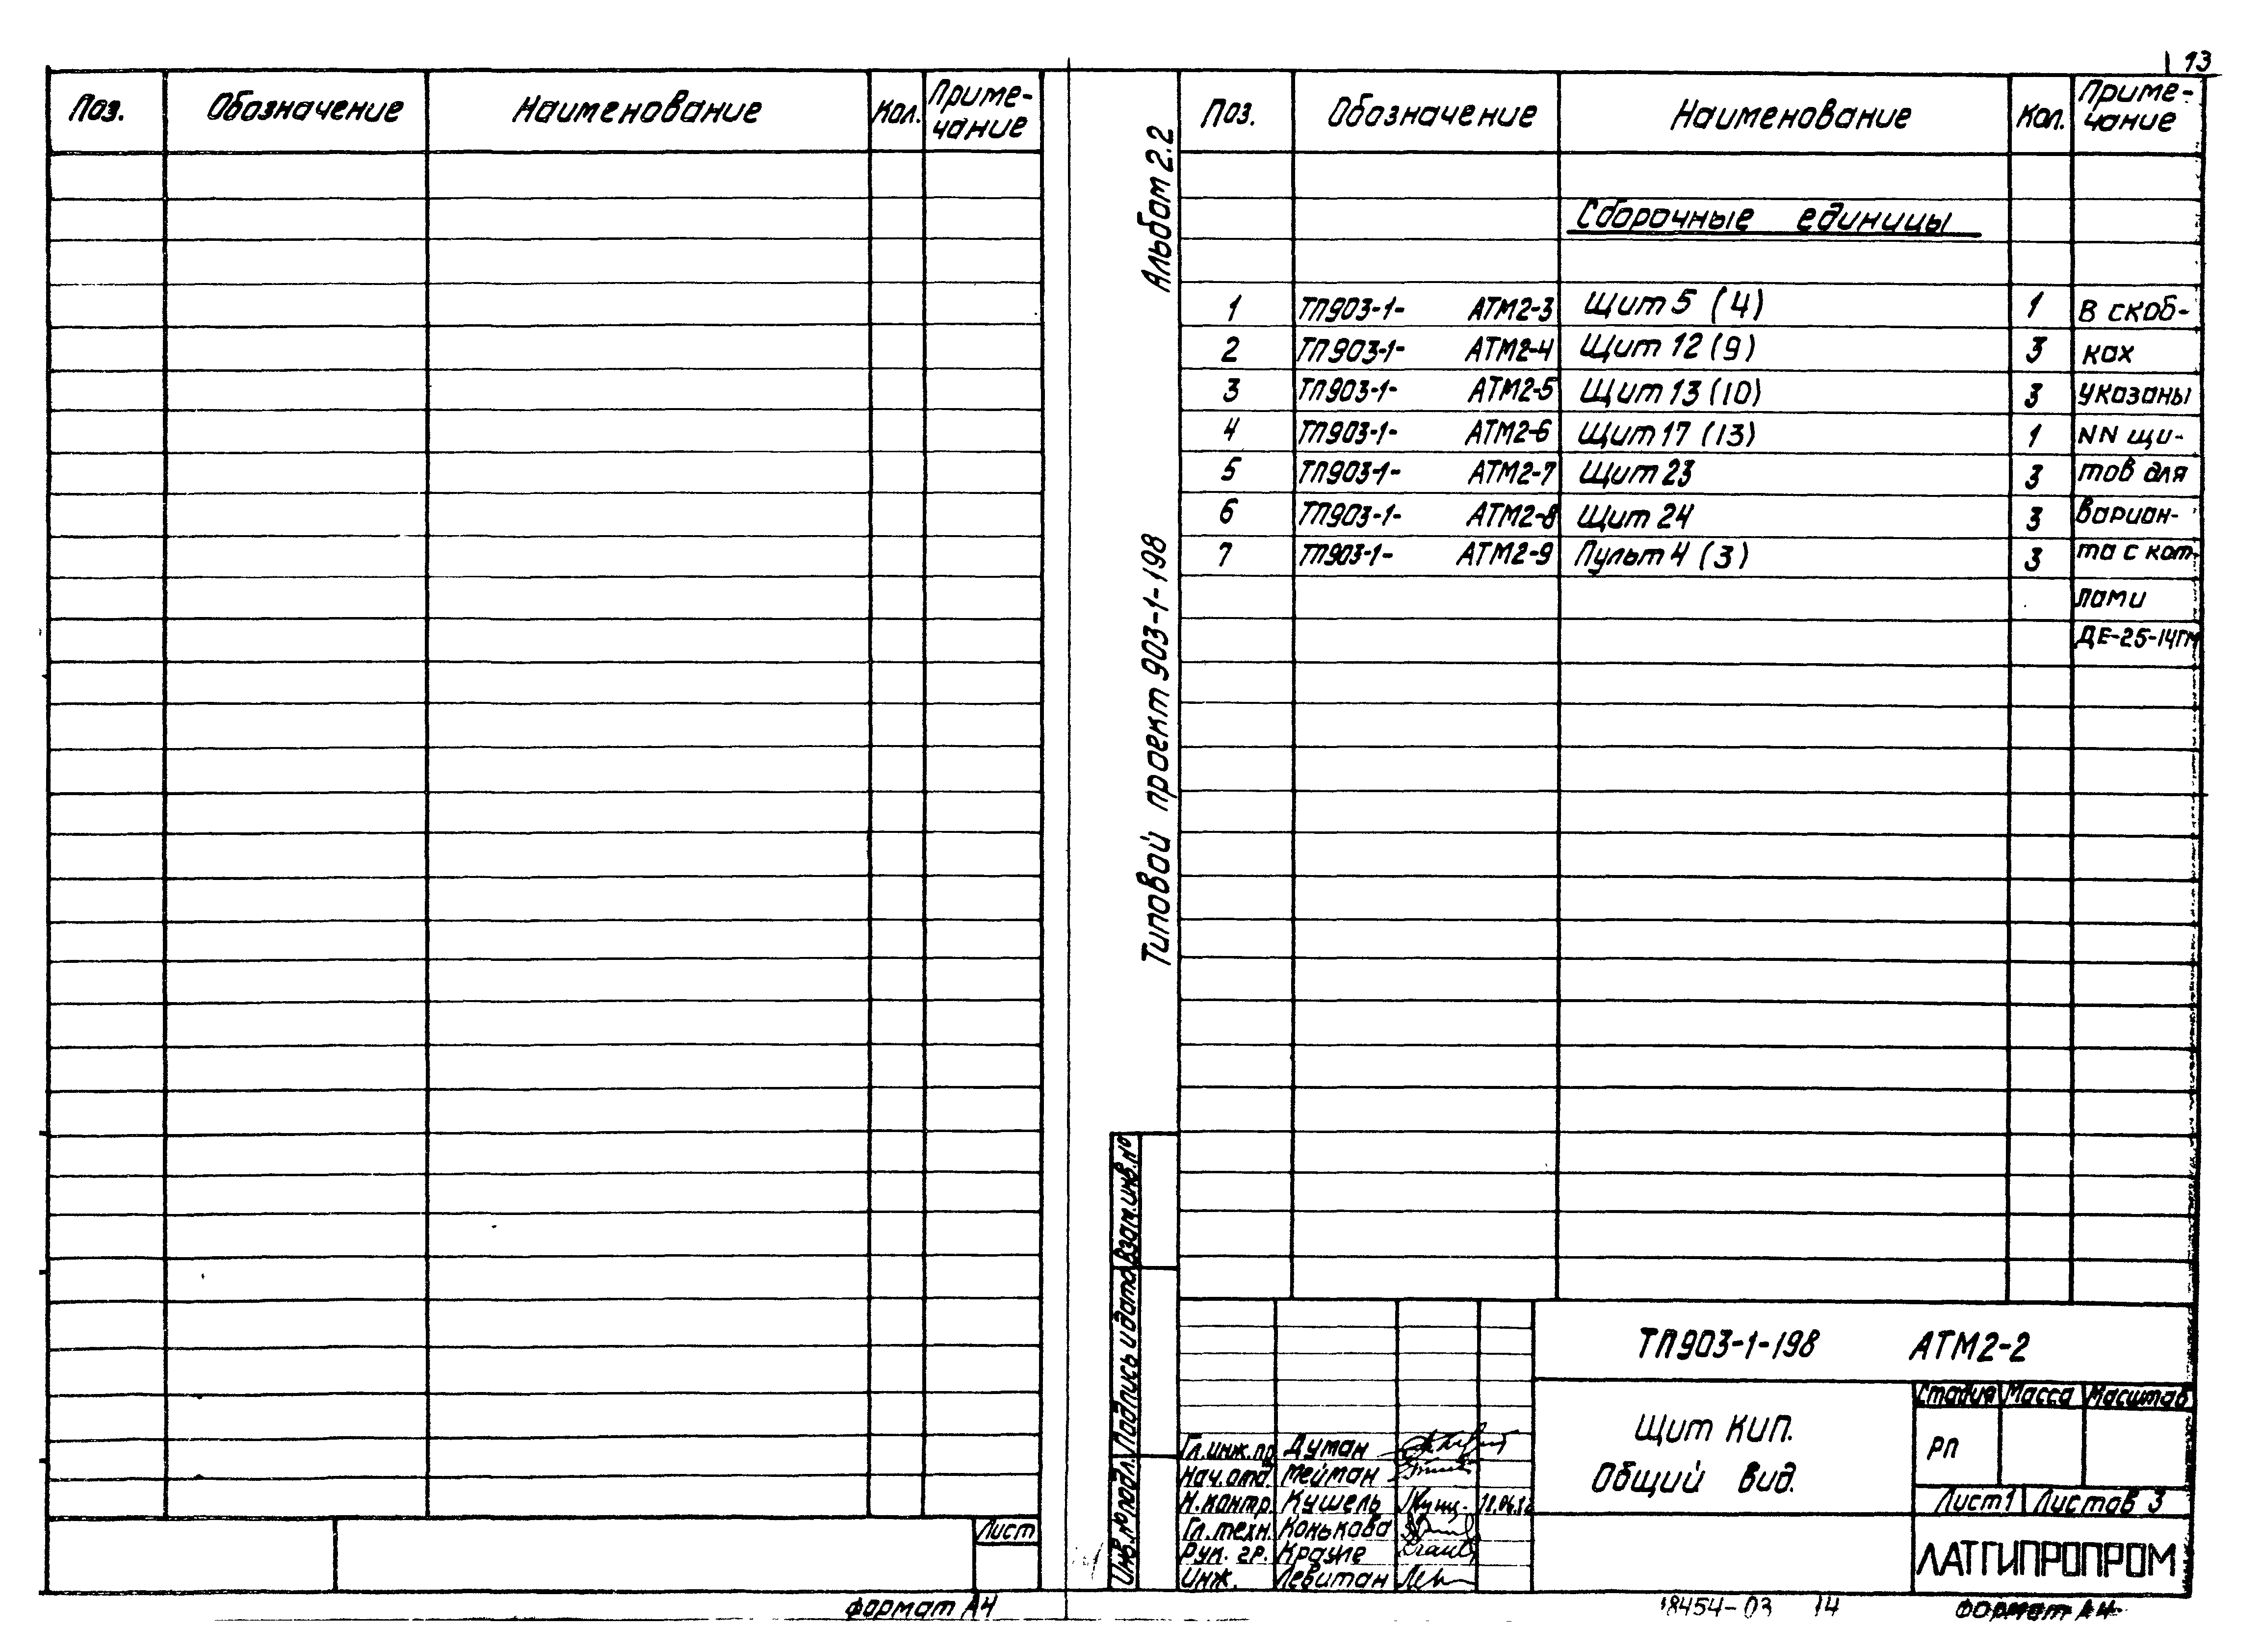 13
Поз. Обозначение Наименование Кол. Приме-
чание
Лист
формат А4
Альбом 2.2
Типовой проект 903-1-198
Взам.инв.№
Подпись и дата
Инв.№ подл.
Поз. Обозначение Наименование Кол. Приме-
чание
Сборочные единицы
1 ТП903-1- АТМ2-3 Щит 5 (4) 1 В скоб-
2 ТП903-1- АТМ2-4 Щит 12 (9) 3 ках
3 ТП903-1- АТМ2-5 Щит 13 (10) 3 указаны
4 ТП903-1- АТМ2-6 Щит 17 (13) 1 NN щи-
5 ТП903-1- АТМ2-7 Щит 23 3 тов для
6 ТП903-1- АТМ2-8 Щит 24 3 вариан-
7 ТП903-1- АТМ2-9 Пульт 4 (3) 3 та с кот-
лами
ДЕ-25-14ГМ
ТП903-1-198 АТМ2-2
Щит КИП.
Общий вид.
Стадия Масса Масштаб
РП
Лист 1 Листов 3
ЛАТГИПРОПРОМ
Гл.инж.пр. Думан
Нач.отд. Мейман
Н.контр. Кушель
Гл.техн. Конькова
Рук. гр. Крауле
Инж. Левитан
18454-03 14
формат А4